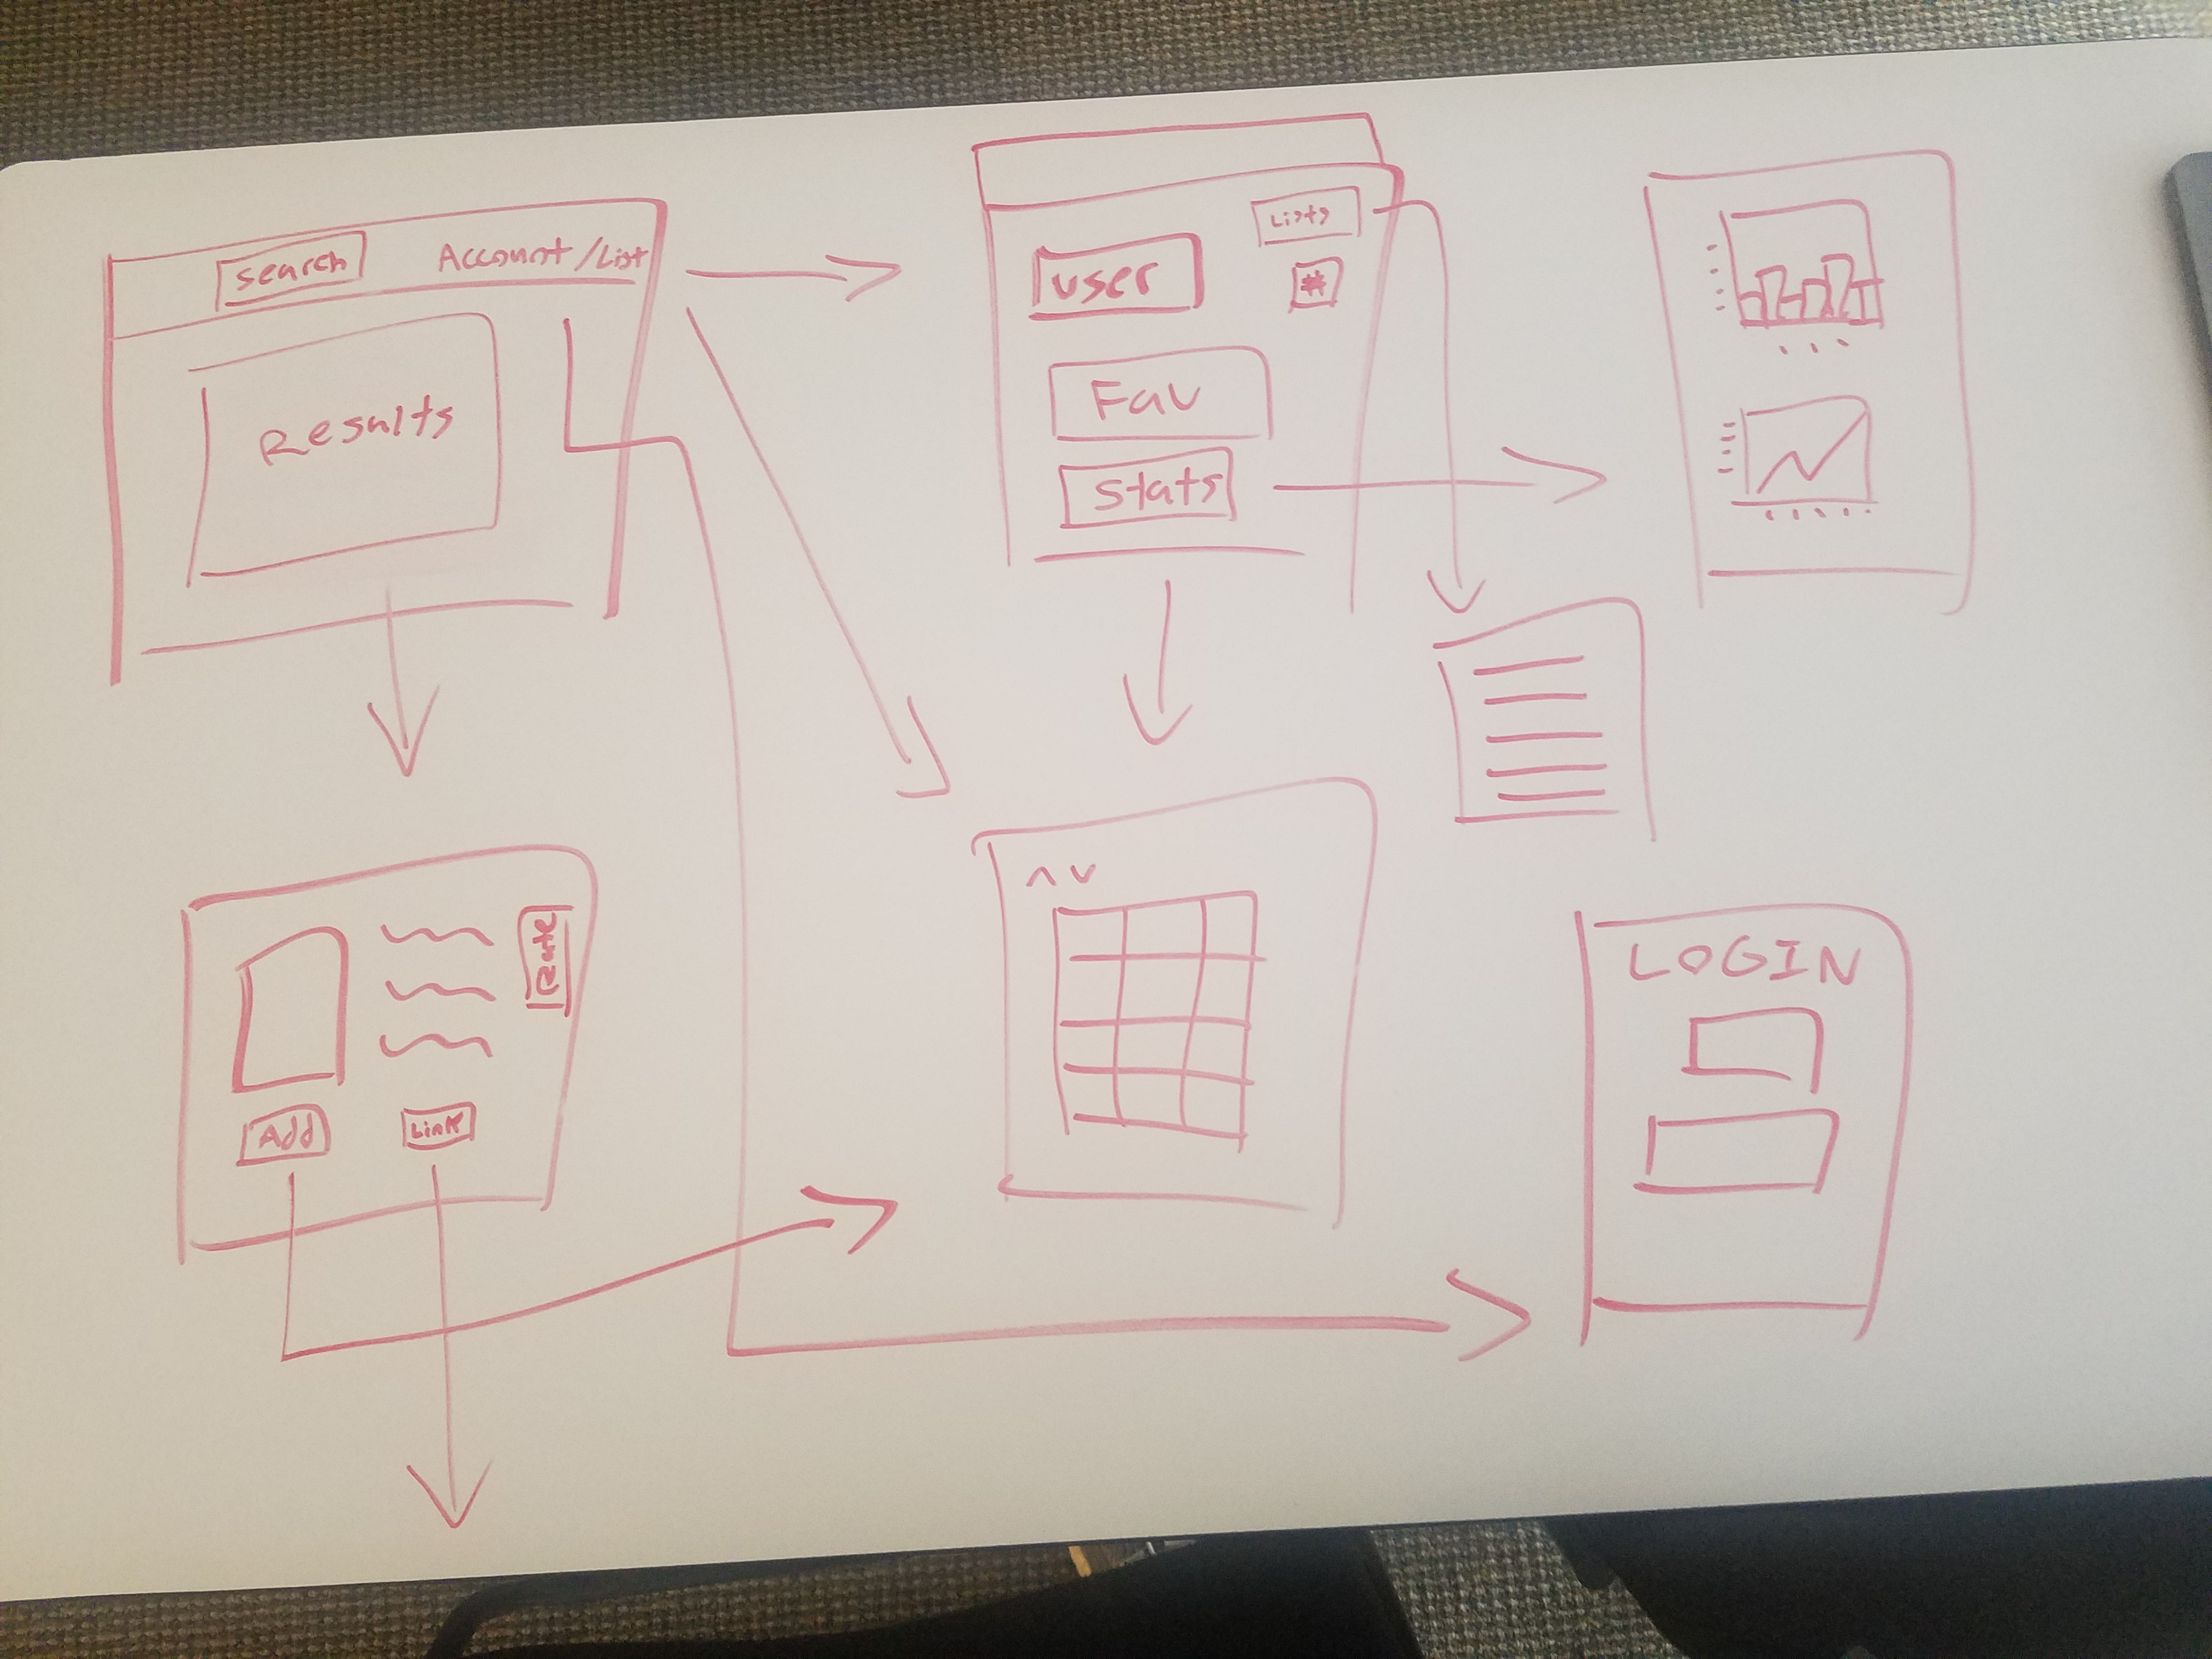 search Account/List
Results
Lists
user
#
Fav
Stats
Rate
Add Link
^ v
LOGIN